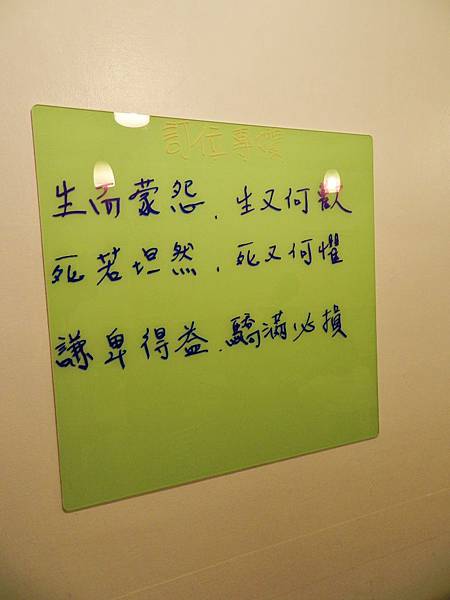 訂位專
生而蒙怨,生又何
死若坦然,死又何懼
謙卑得益,驕滿必損